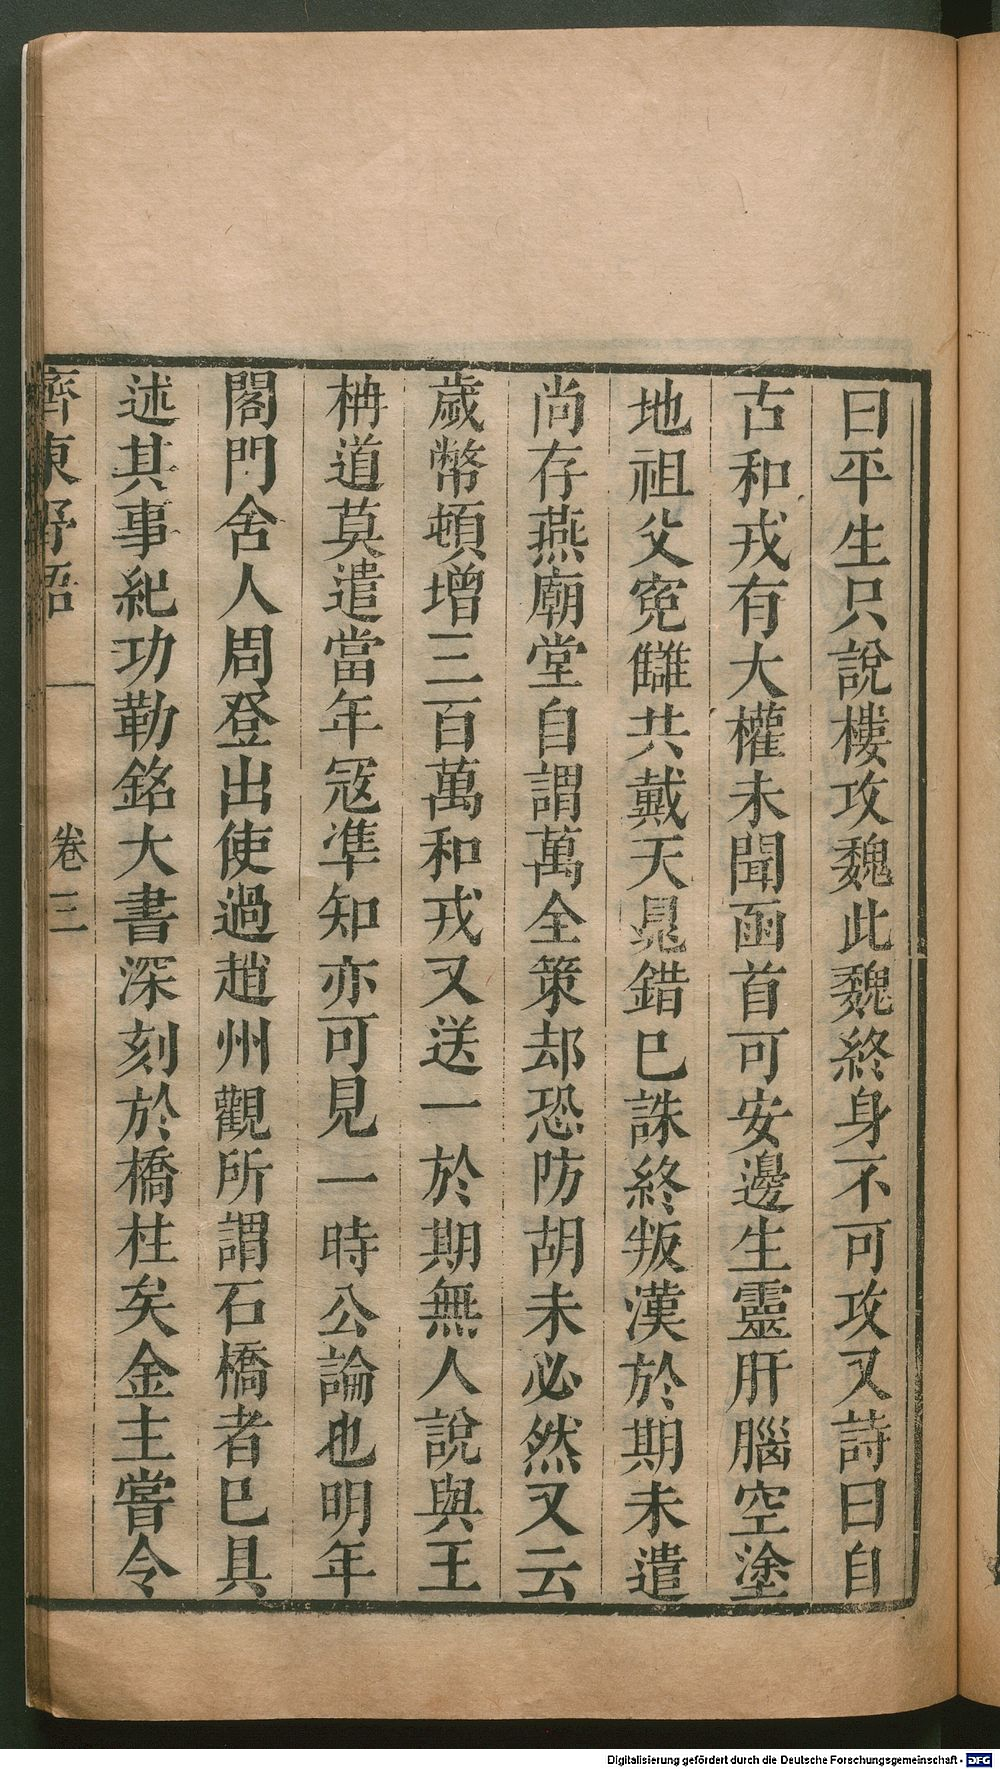 曰平生只說樓攻魏此魏終身不可攻又詩曰自
古和戎有大權未聞函首可安邊生靈肝腦空塗
地祖父寃讎共戴天鼂錯巳誅終叛漢於期未遣
尚存燕廟堂自謂萬全策却恐防胡未必然又云
歲幣頓增三百萬和戎又送一於期無人說與王
柟道莫遣當年冦準知亦可見一時公論也明年
閣門舍人周登出使過趙州觀所謂石橋者巳具
述其事紀功勒銘大書深刻於橋柱矣金主嘗令
齊東野語 卷三
Digitalisierung gefördert durch die Deutsche Forschungsgemeinschaft - DFG